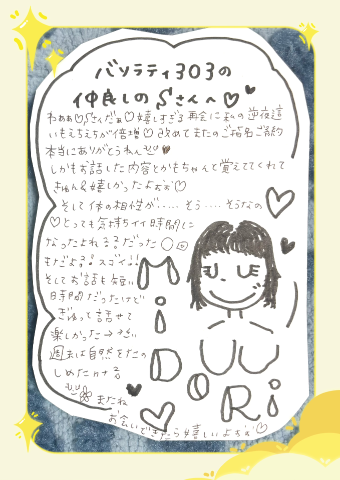 バソラティ303の
仲良しのSさんへ♡
わぁぁ♡Sさんだぁ♡嬉しすぎる再会に私の逆夜這
いもえちえちが倍増♡改めてまたのご指名ご予約
本当にありがとうねん
しかもお話した内容とかもちゃんと覚えててくれて
きゅん&嬉しかったよぉぉ♡
そして体の相性が.....そう....そうなの
♡とっても気持ちイイ時間に
なったよれる?だった○◎
まだよる!スゴイ!!
そしてお話も短い
時間だったけど
ぎゅって話せて
楽しかった
週末は自然をたの
しめたけする
またね
お会いできたら嬉しいよぉぉ♡
MiDORi